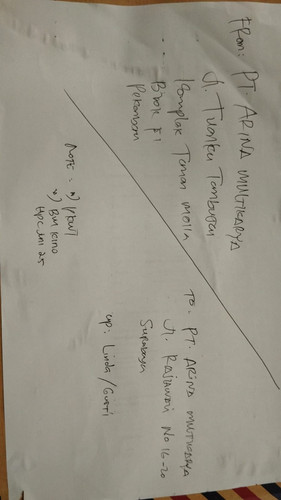 From: PT. ARINA MULTIKARYA
Jl. Tuanku Tambusai
Komplek Taman Mella
Blok F1
Pekanbaru
To. PT. ARINA MULTIKARYA
Jl. Rajawali No 16-20
Surabaya
up: Linda/Gusti
Note: *)
*) BM KINO